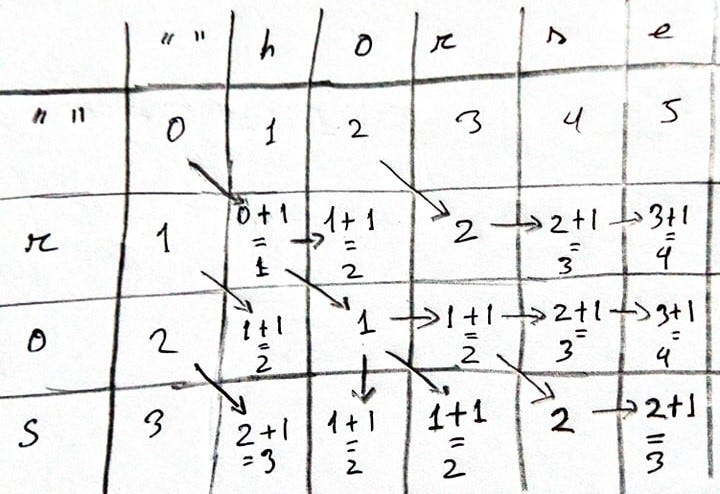 " " h o r s e
" " 0 1 2 3 4 5
r 1 0+1 = 1 → 1+1 = 2 2 → 2+1 = 3 → 3+1 = 4
o 2 1+1 = 2 1 → 1+1 = 2 → 2+1 = 3 → 3+1 = 4
S 3 2+1 = 3 1+1 = 2 1+1 = 2 2 → 2+1 = 3